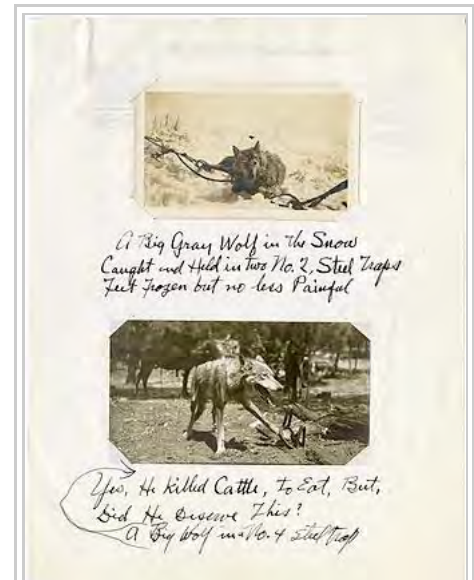 A Big Gray Wolf in the Snow
Caught and Held in two No. 2, Steel Traps
Feet Frozen but no less Painful
Yes, He Killed Cattle, to Eat, But,
Did He Deserve This?
A Big Wolf in a No. 4 Steel trap